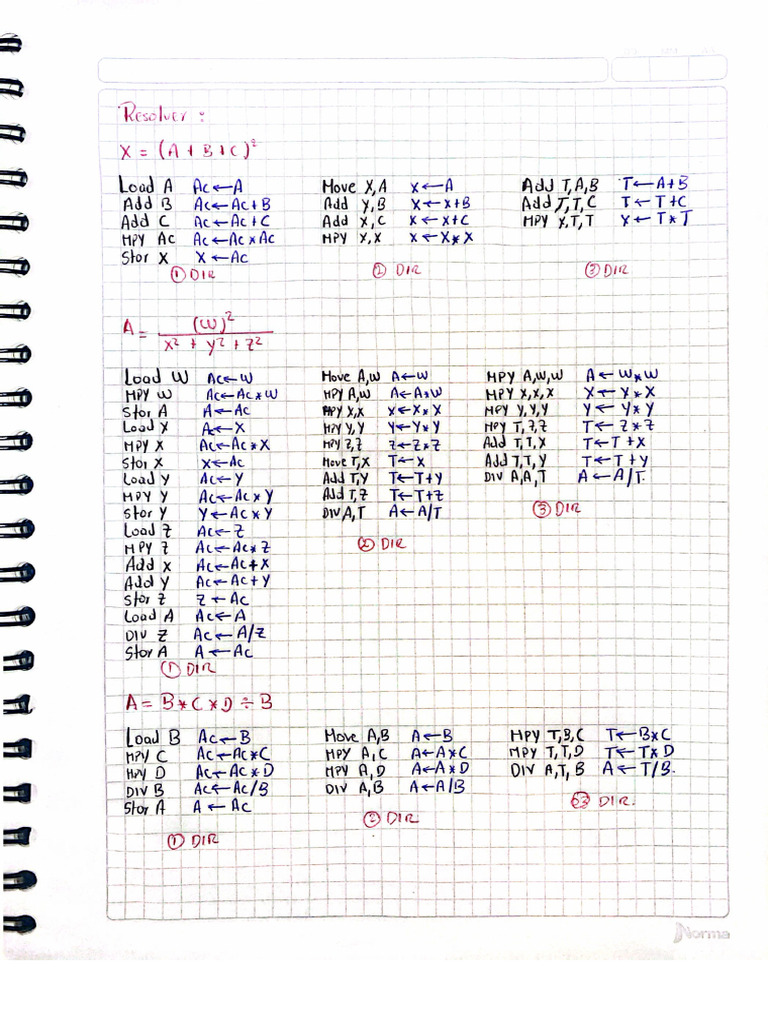 Resolver :
X = (A + B + C)²
Load A Ac ← A
Add B Ac ← Ac + B
Add C Ac ← Ac + C
MPY Ac Ac ← Ac * Ac
Stor X X ← Ac
① DIR
Move X,A X ← A
Add Y,B X ← X + B
Add X,C X ← X + C
MPY X,X X ← X * X
② DIR
Add T,A,B T ← A + B
Add T,T,C T ← T + C
MPY X,T,T X ← T * T
③ DIR
A = (W)² / X² + Y² + Z²
Load W Ac ← W
MPY W Ac ← Ac * W
Stor A A ← Ac
Load X Ac ← X
MPY X Ac ← Ac * X
Stor X X ← Ac
Load Y Ac ← Y
MPY Y Ac ← Ac * Y
Stor Y Y ← Ac * Y
Load Z Ac ← Z
MPY Z Ac ← Ac * Z
Add X Ac ← Ac + X
Add Y Ac ← Ac + Y
Stor Z Z ← Ac
Load A Ac ← A
DIV Z Ac ← A/Z
Stor A A ← Ac
① DIR
Move A,W A ← W
MPY A,W A ← A * W
MPY X,X X ← X * X
MPY Y,Y Y ← Y * Y
MPY Z,Z Z ← Z * Z
Move T,X T ← X
Add T,Y T ← T + Y
Add T,Z T ← T + Z
DIV A,T A ← A/T
② DIR
MPY A,W,W A ← W * W
MPY X,X,X X ← X * X
MPY Y,Y,Y Y ← Y * Y
MPY T,Z,Z T ← Z * Z
Add T,T,X T ← T + X
Add T,T,Y T ← T + Y
DIV A,A,T A ← A/T.
③ DIR
A = B * C * D ÷ B
Load B Ac ← B
MPY C Ac ← Ac * C
MPY D Ac ← Ac * D
DIV B Ac ← Ac/B
Stor A A ← Ac
① DIR
Move A,B A ← B
MPY A,C A ← A * C
MPY A,D A ← A * D
DIV A,B A ← A/B
② DIR
MPY T,B,C T ← B * C
MPY T,T,D T ← T * D
DIV A,T,B A ← T/B.
③ DIR.
Norma